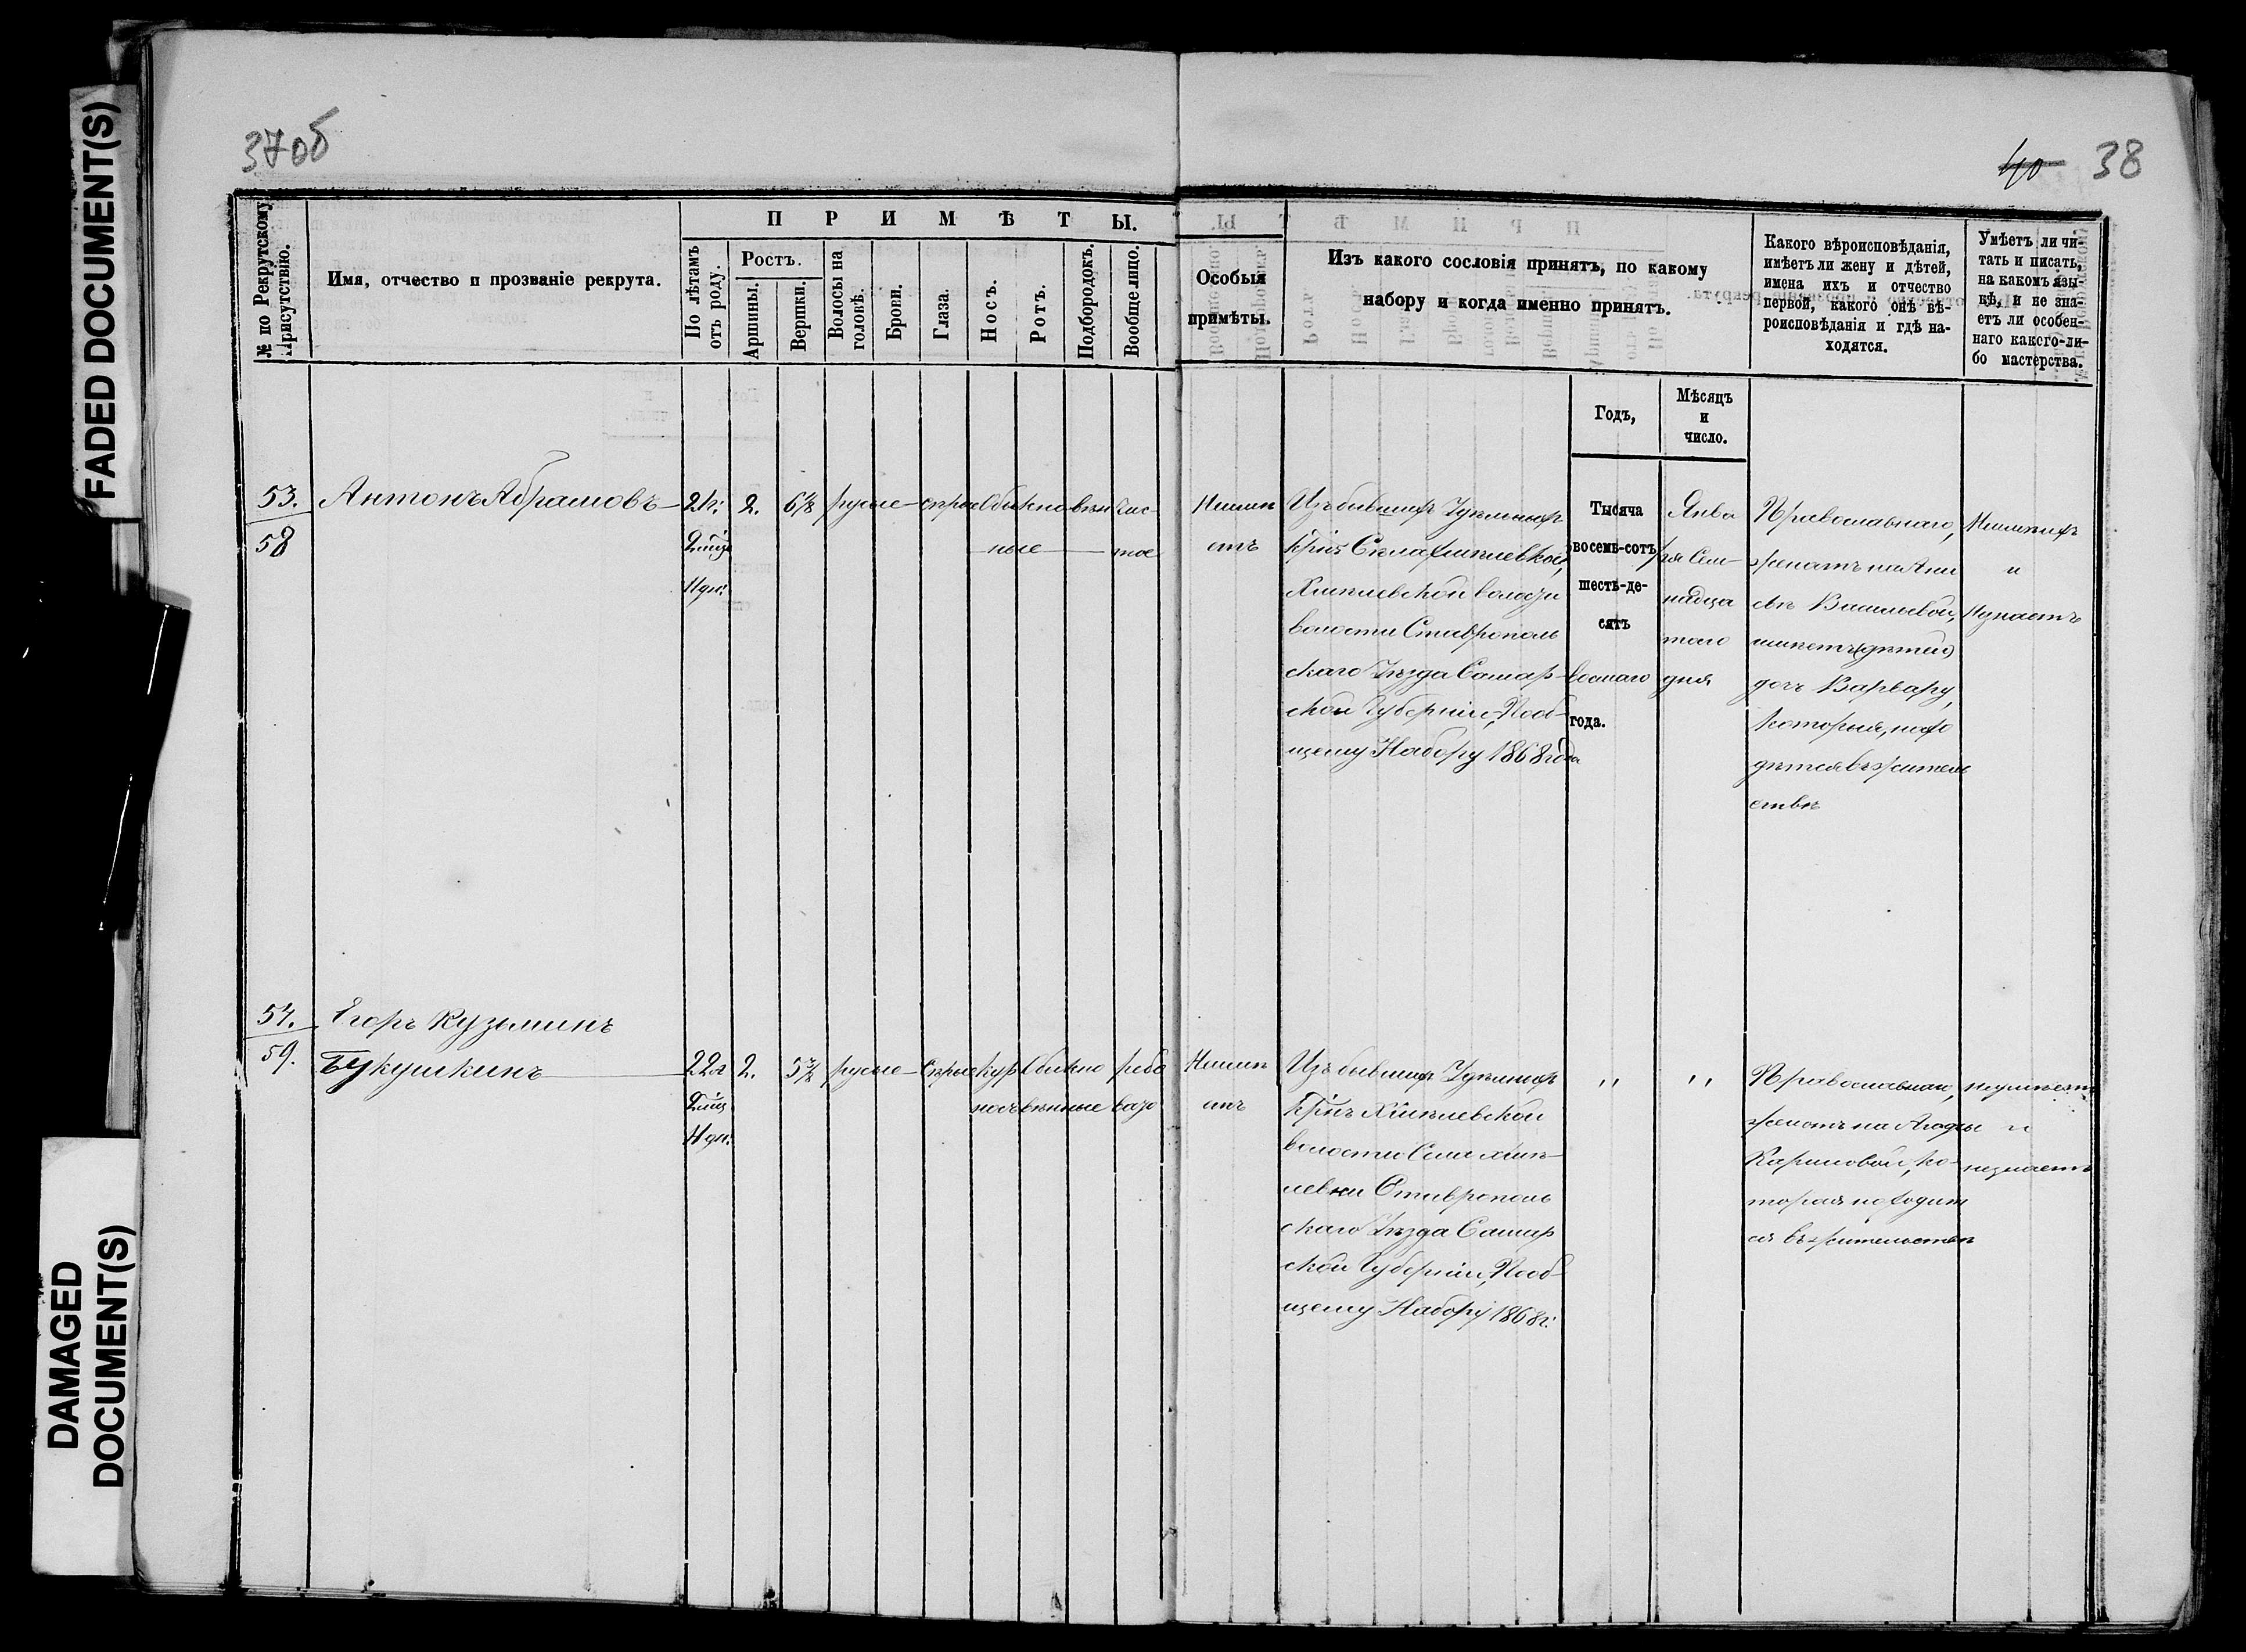 FADED DOCUMENT(S)
DAMAGED
DOCUMENT(S)
37об
40 38
№ по Рекрутскому
Присутствію.
Имя, отчество и прозваніе рекрута.
ПРИМѢТЫ.
По лѣтамъ
отъ роду.
Ростъ.
Аршины.
Вершки.
Волосы на
головѣ.
Брови.
Глаза.
Носъ.
Ротъ.
Подбородокъ.
Вообще лицо.
Особыя
примѣты.
Изъ какого сословія принятъ, по какому
набору и когда именно принятъ.
Годъ,
Мѣсяцъ
и
число.
Какого вѣроисповѣданія,
имѣетъ ли жену и дѣтей,
имена ихъ и отчество
первой, какого онѣ вѣ-
роисповѣданія и гдѣ на-
ходятся.
Умѣетъ ли чи-
тать и писать,
на какомъ язы-
кѣ, и не зна-
етъ ли особен-
наго какого-ли-
бо мастерства.
53.
58
Антонъ Абрамовъ
2.
6⅛
русые
сѣрые
Обыкновен
ные
чис-
тое
Неимѣ
етъ
Изъ бывшихъ Удѣльныхъ
Крн̃ъ Села
волости Ставрополь
скаго Уѣзда Самар-
ской Губерніи, Пооб-
щему Набору 1868 года
Тысяча
восемь-сотъ
шесть-де-
сятъ
восмаго
года.
Янва
ря Сем-
надца
таго
дня
Православнаго,
женатъ на
Васильевой,
имѣетъ дѣтей
дочь Варвару,
которыя, нахо
дятся въ житель
ствѣ
и
Незнаетъ
54.
59.
Егоръ Кузьминъ
Букушкинъ
22л
2.
русые
Сѣрые
Кур
носъ
Обыкно
венные
рябо
вато
Неимѣ
етъ
Изъ бывшихъ Удѣльныхъ
Крн̃ъ
волости Села
Ставрополь
скаго Уѣзда Самар
ской Губерніи, Пооб-
щему Набору 1868 г.
" "
Православнаго,
женатъ на
Карповой, ко-
торая находит
ся въ жительствѣ
неумѣетъ
и
незнаетъ